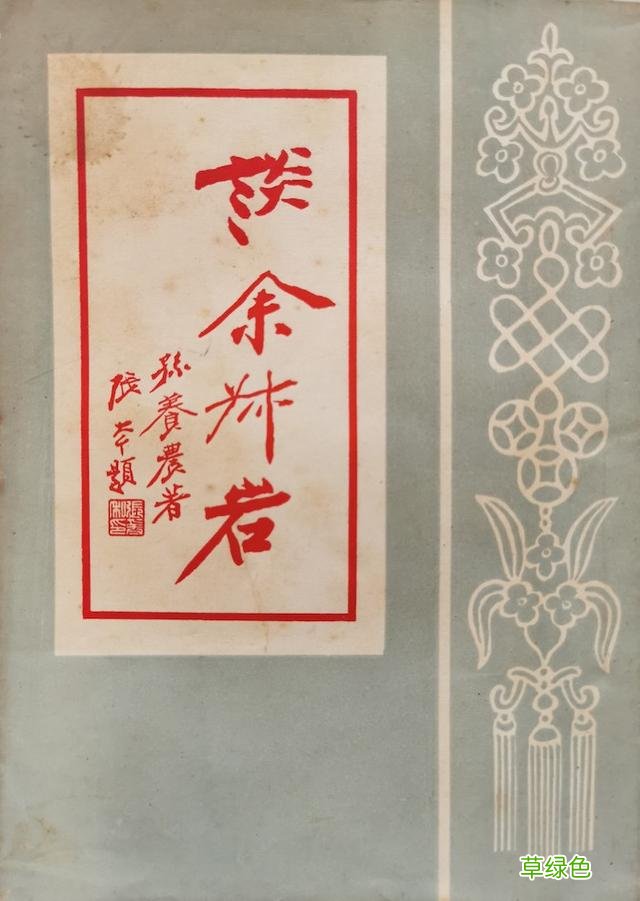 談余叔岩
孫養農著
張大千題
草绿色